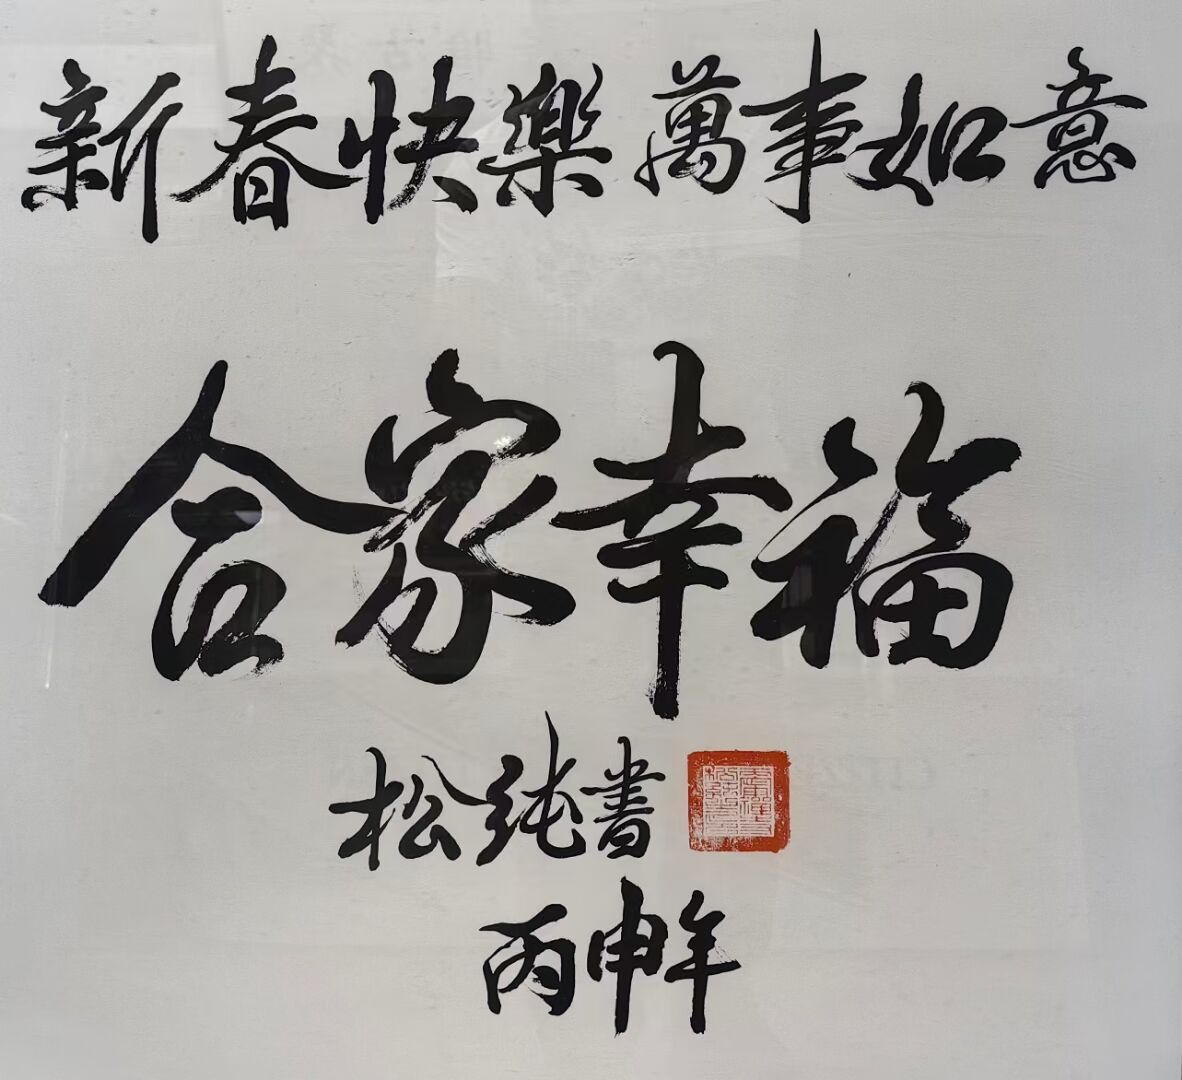 新春快樂 萬事如意
合家幸福
松純書
丙申年